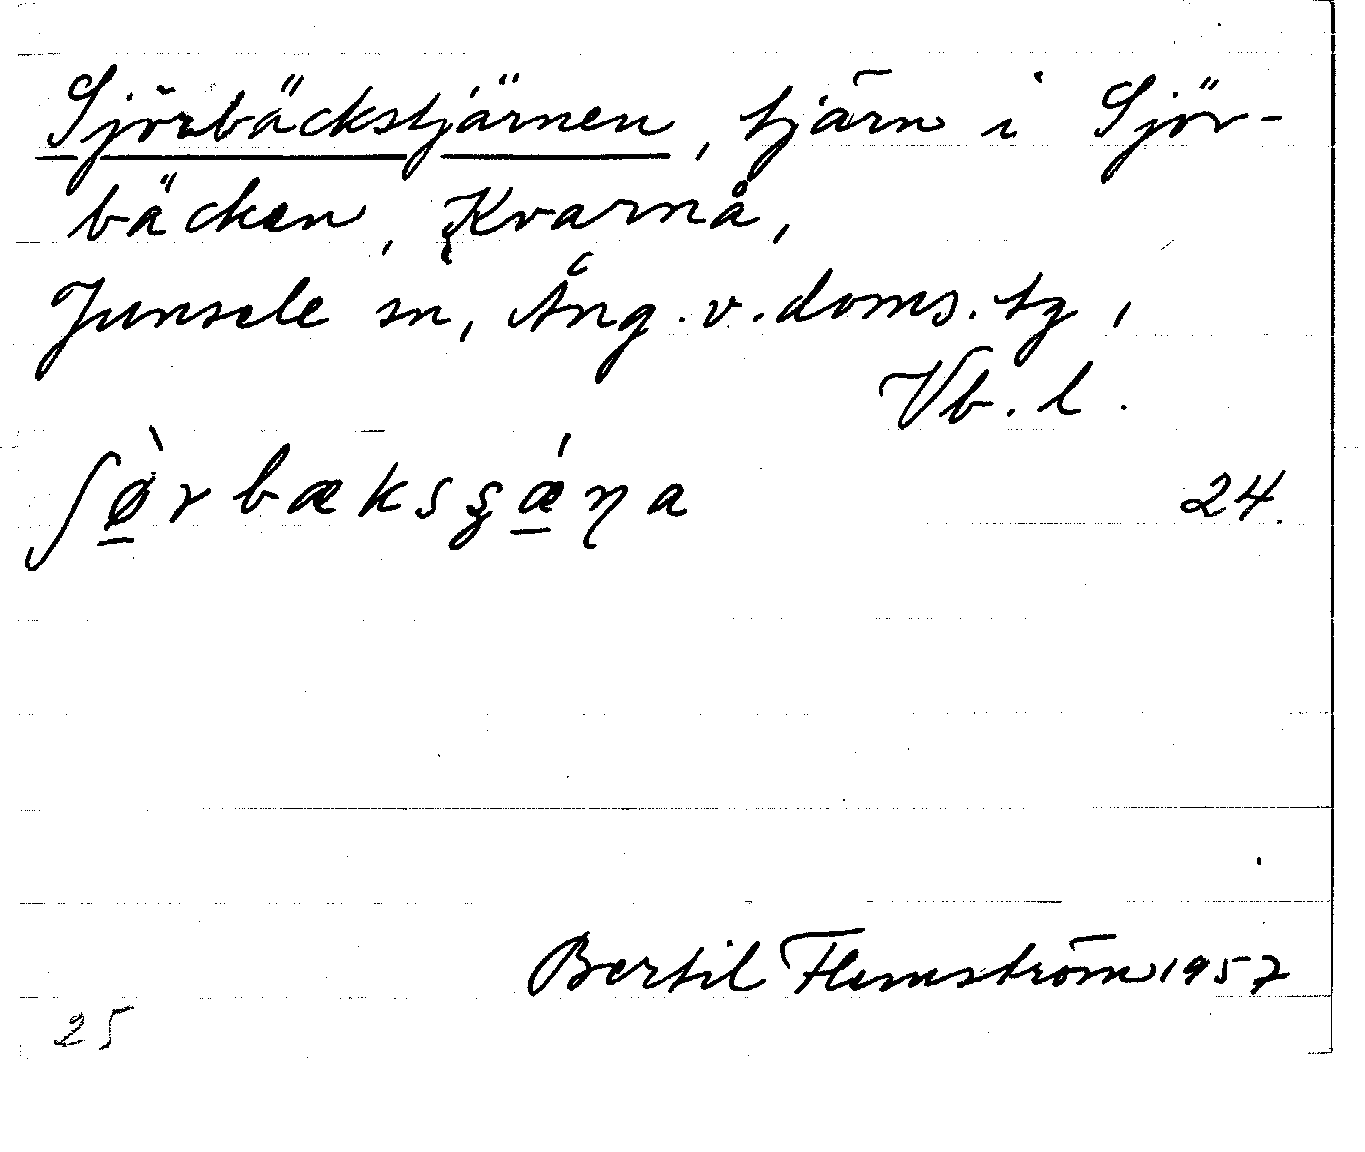 Sjörbäckstjärnen, tjärn i Sjör-
bäcken, Kvarnå,
Junsele sn, Ång. v. doms. tg,
Vb. l.
ʃø̀rbæksʂǽɳa 24.
Bertil Flemström 1957
25